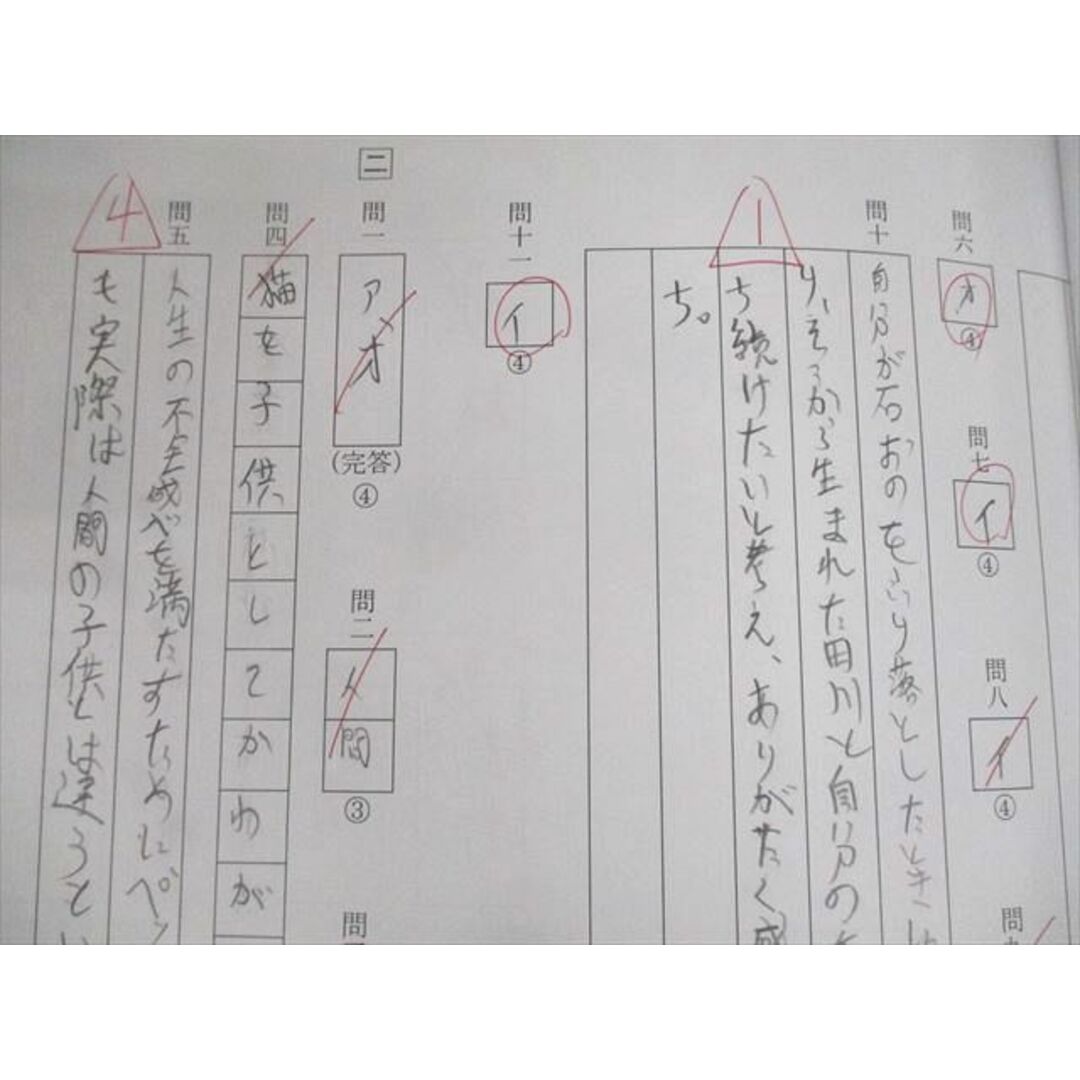 問六
オ
④
問七
イ
④
問八
イ
④
問
問十
自分が石おのをふり落としたとき
り、そこから生まれた田川と自分の
1
ち続けたいと考え、ありがたく感
ち。
問十一
イ
④
二
問一
ア、オ
(完答)
④
問二
人間
③
問
問四
猫を子供としてかわが
問五
人生の不全感を満たすためにペッ
4
も実際は人間の子供とは違うとい